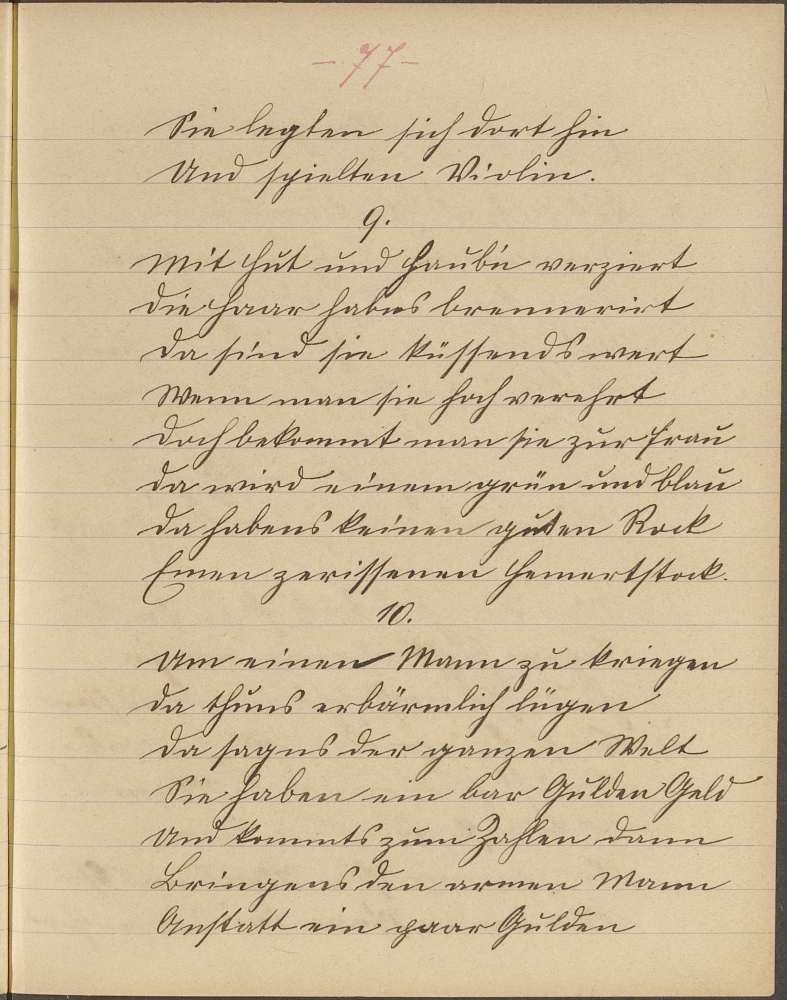 - 77 -
Sie legten sich dort hin
Und spielten Violin.
9.
Mit Hut und Haub'n verziert
Die Haar habns brennerirt
Da sind sie küssendswert
Wenn man sie hoch verehrt
Doch bekommt man sie zur Frau
Da wird einem grün und blau
Da habens keinen guten Rock
Einen zerissenen
10.
Um einen Mann zu kriegen
Da thuns erbärmlich lügen
Da sagns der ganzen Welt
Sie haben ein bar Gulden Geld
Und kommts zum Zahlen dann
Bringens den armen Mann
Anstatt ein paar Gulden